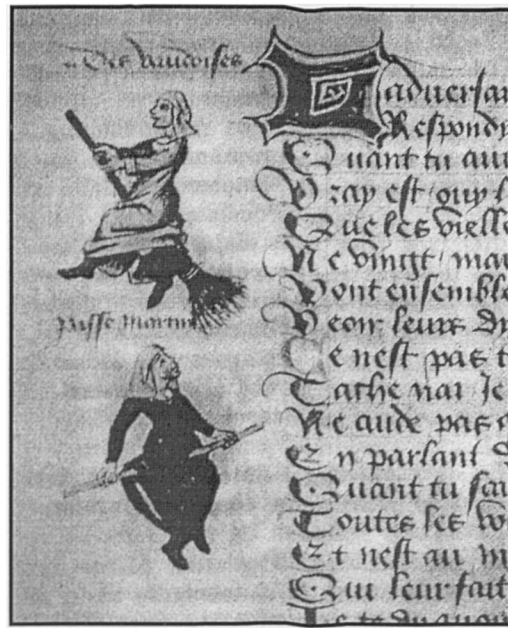 Des vaudoises
Passe Martin
L aduersai
Respondy
Quant tu aur
Vray est ouy l
Que les vielle
Ne vingt mai
Vont ensemble
Veoir leurs dy
Ce nest pas t
Tache nai Je
Ne cuide pas
En parlant d
Quant tu sca
Toutes les vo
Et nest au m
Qui leur fait